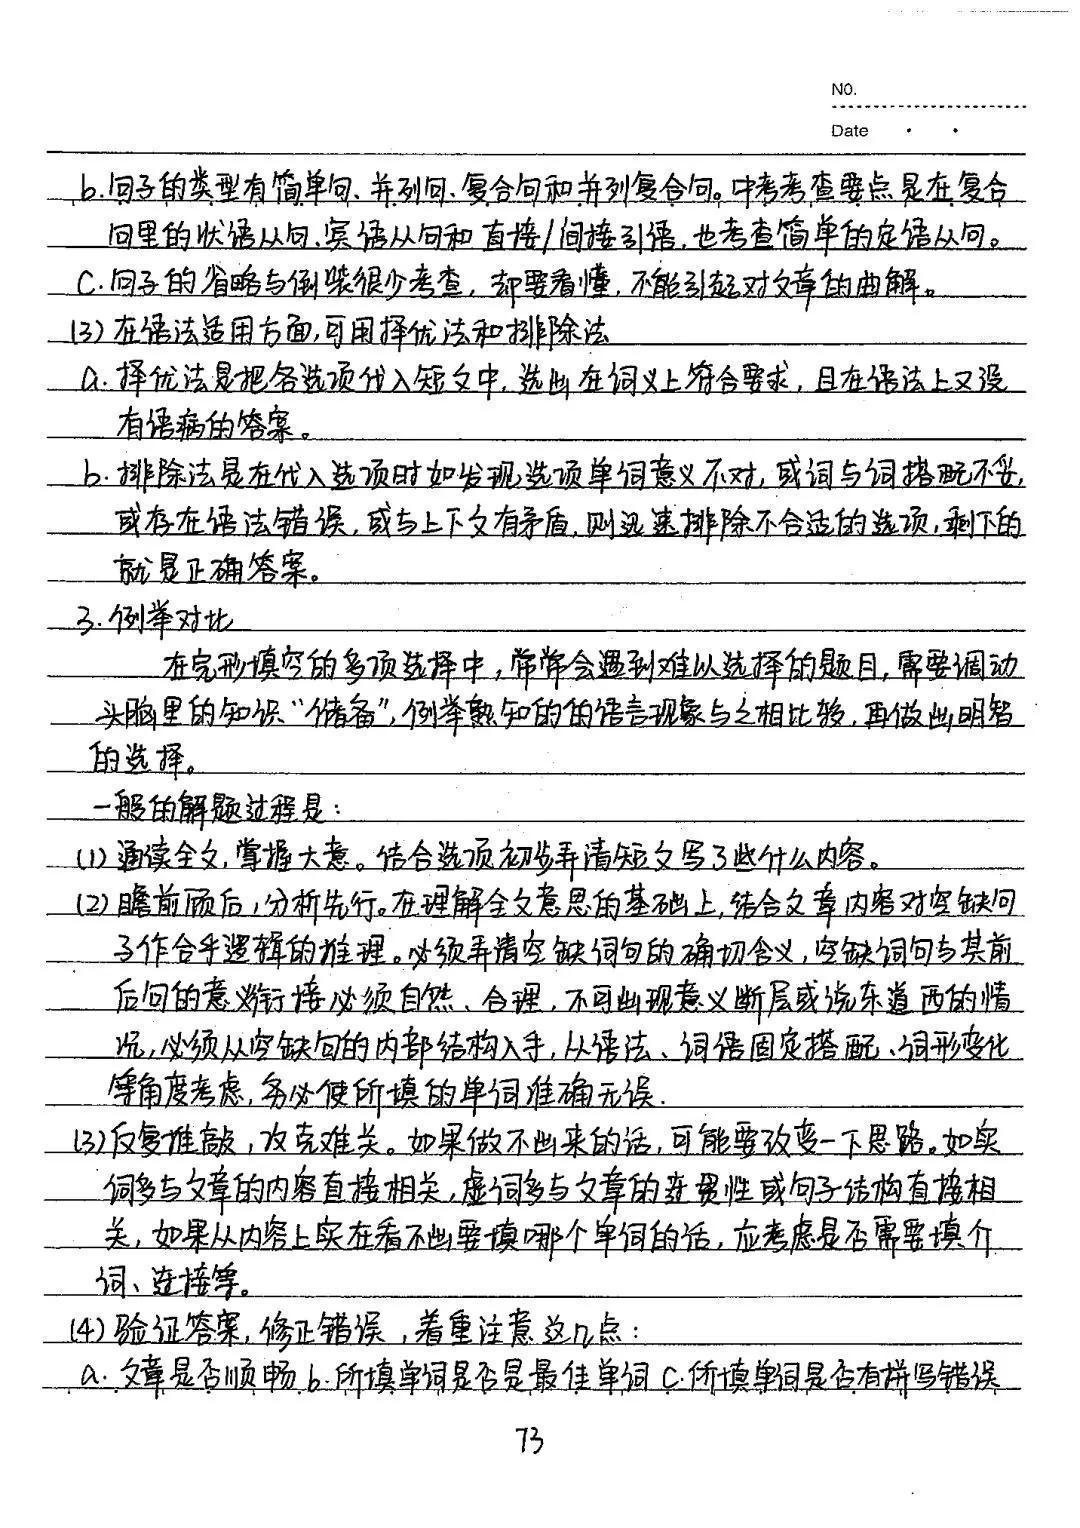 NO.
Date
b.句子的类型有简单句、并列句、复合句和并列复合句。中考考查要点是在复合
句里的状语从句、宾语从句和直接/间接引语,也考查简单的定语从句。
C.句子的省略与倒装很少考查,却要看懂,不能引起对文章的曲解。
(3)在语法适用方面,可用择优法和排除法
a.择优法是把各选项代入短文中,选出在词义上符合要求,且在语法上又没
有语病的答案。
b.排除法是在代入选项时如发现选项单词意义不对,或词与词搭配不妥,
或存在语法错误,或与上下文有矛盾,则迅速排除不合适的选项,剩下的
就是正确答案。
3.例举对比
在完形填空的多项选择中,常常会遇到难以选择的题目,需要调动
头脑里的知识“储备”,例举熟知的的语言现象与之相比较,再做出明智
的选择。
一般的解题过程是:
(1)通读全文,掌握大意。结合选项初步弄清短文写了些什么内容。
(2)瞻前顾后,分析先行。在理解全文意思的基础上,结合文章内容对空缺句
子作合乎逻辑的推理。必须弄清空缺词句的确切含义,空缺词句与其前
后句的意义衔接必须自然、合理,不可出现意义断层或说东道西的情
况,必须从空缺句的内部结构入手,从语法、词语固定搭配、词形变化
等角度考虑,务必使所填的单词准确无误.
(3)反复推敲,攻克难关。如果做不出来的话,可能要改变一下思路。如实
词多与文章的内容直接相关,虚词多与文章的连贯性或句子结构直接相
关,如果从内容上实在看不出要填哪个单词的话,应考虑是否需要填介
词、连接等。
(4)验证答案,修正错误,着重注意这几点:
a.文章是否顺畅 b.所填单词是否是最佳单词 C.所填单词是否有拼写错误
73